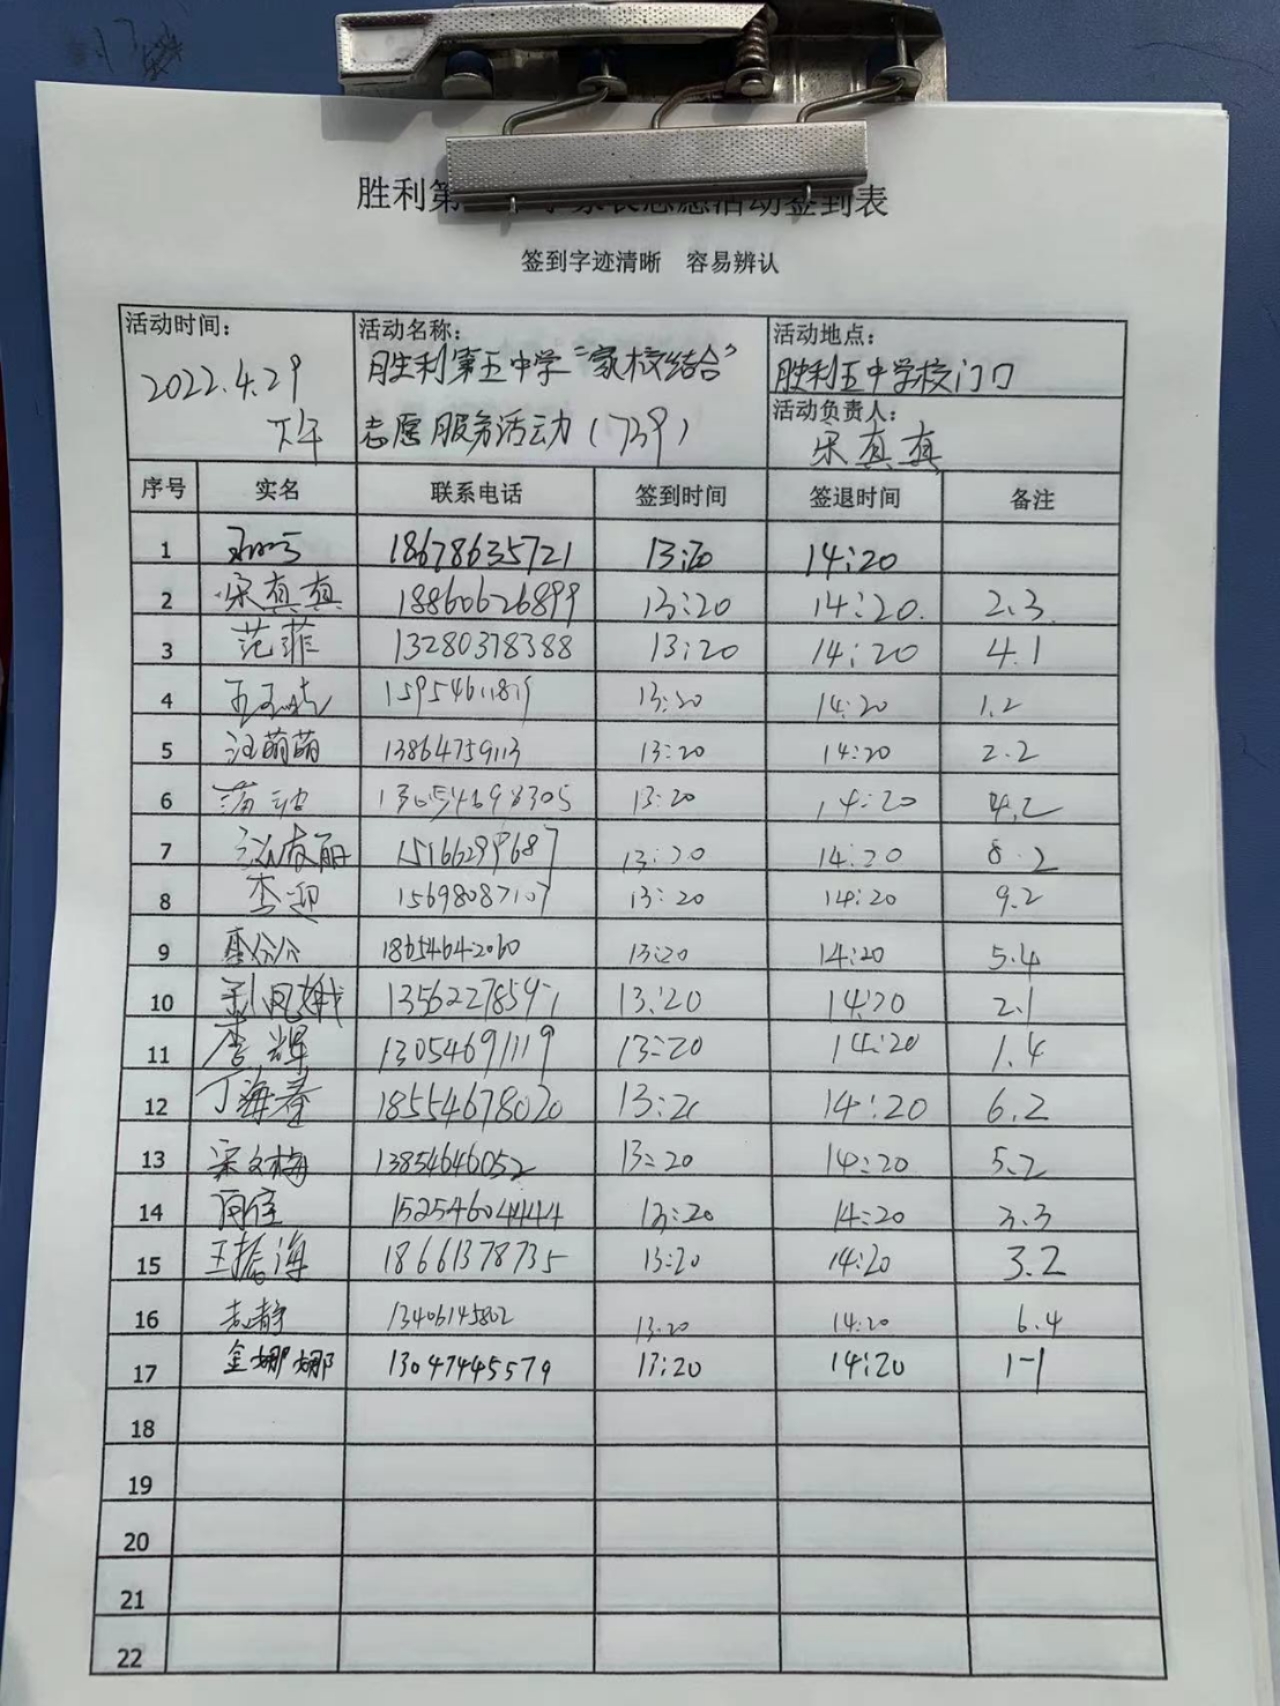 胜利第 家长志愿活动签到表
签到字迹清晰 容易辨认
活动时间：
2022.4.29
下午
活动名称：
胜利第五中学“家校结合”
志愿服务活动（739）
活动地点：
胜利五中学校门口
活动负责人：
宋真真
序号 实名 联系电话 签到时间 签退时间 备注
1 18678635721 13:20 14:20
2 宋真真 18860626899 13:20 14:20. 2.3
3 范菲 13280378388 13:20 14:20 4.1
4 15954611819 13:20 14:20 1.2
5 汪萌萌 13864759113 13:20 14:20 2.2
6 13:20 14:20 4.2
7 15166299687 13:20 14:20 8.2
8 李迎 15698087107 13:20 14:20 9.2
9 18654642060 13:20 14:20 5.4
10 13562278591 13:20 14:20 2.1
11 李辉 13054691119 13:20 14:20 1.4
12 丁海春 18554678020 13:20 14:20 6.2
13 宋文梅 13854646052 13:20 14:20 5.2
14 15254604444 13:20 14:20 3.3
15 王振海 18661378735 13:20 14:20 3.2
16 13406145802 13:20 14:20 6.4
17 金娜娜 13047445579 13:20 14:20 1-1
18
19
20
21
22